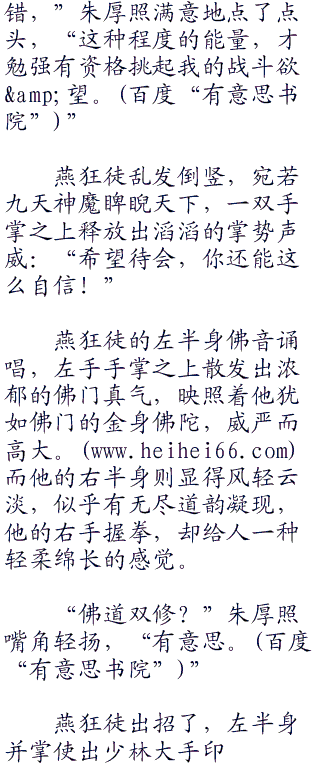 错，”朱厚照满意地点了点
头，“这种程度的能量，才
勉强有资格挑起我的战斗欲
&amp;望。(百度“有意思书
院”)”
燕狂徒乱发倒竖，宛若
九天神魔睥睨天下，一双手
掌之上释放出滔滔的掌势声
威：“希望待会，你还能这
么自信！”
燕狂徒的左半身佛音诵
唱，左手手掌之上散发出浓
郁的佛门真气，映照着他犹
如佛门的金身佛陀，威严而
高大。(www.heihei66.com)
而他的右半身则显得风轻云
淡，似乎有无尽道韵凝现，
他的右手握拳，却给人一种
轻柔绵长的感觉。
“佛道双修？”朱厚照
嘴角轻扬，“有意思。(百度
“有意思书院”)”
燕狂徒出招了，左半身
并掌使出少林大手印